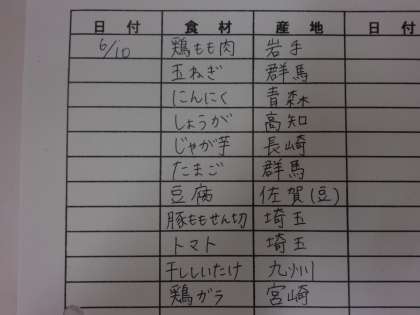 日付 食材 産地 日付
6/10 鶏もも肉 岩手
玉ねぎ 群馬
にんにく 青森
しょうが 高知
じゃが芋 長崎
たまご 群馬
豆腐 佐賀(豆)
豚ももせん切 埼玉
トマト 埼玉
干ししいたけ 九州
鶏ガラ 宮崎